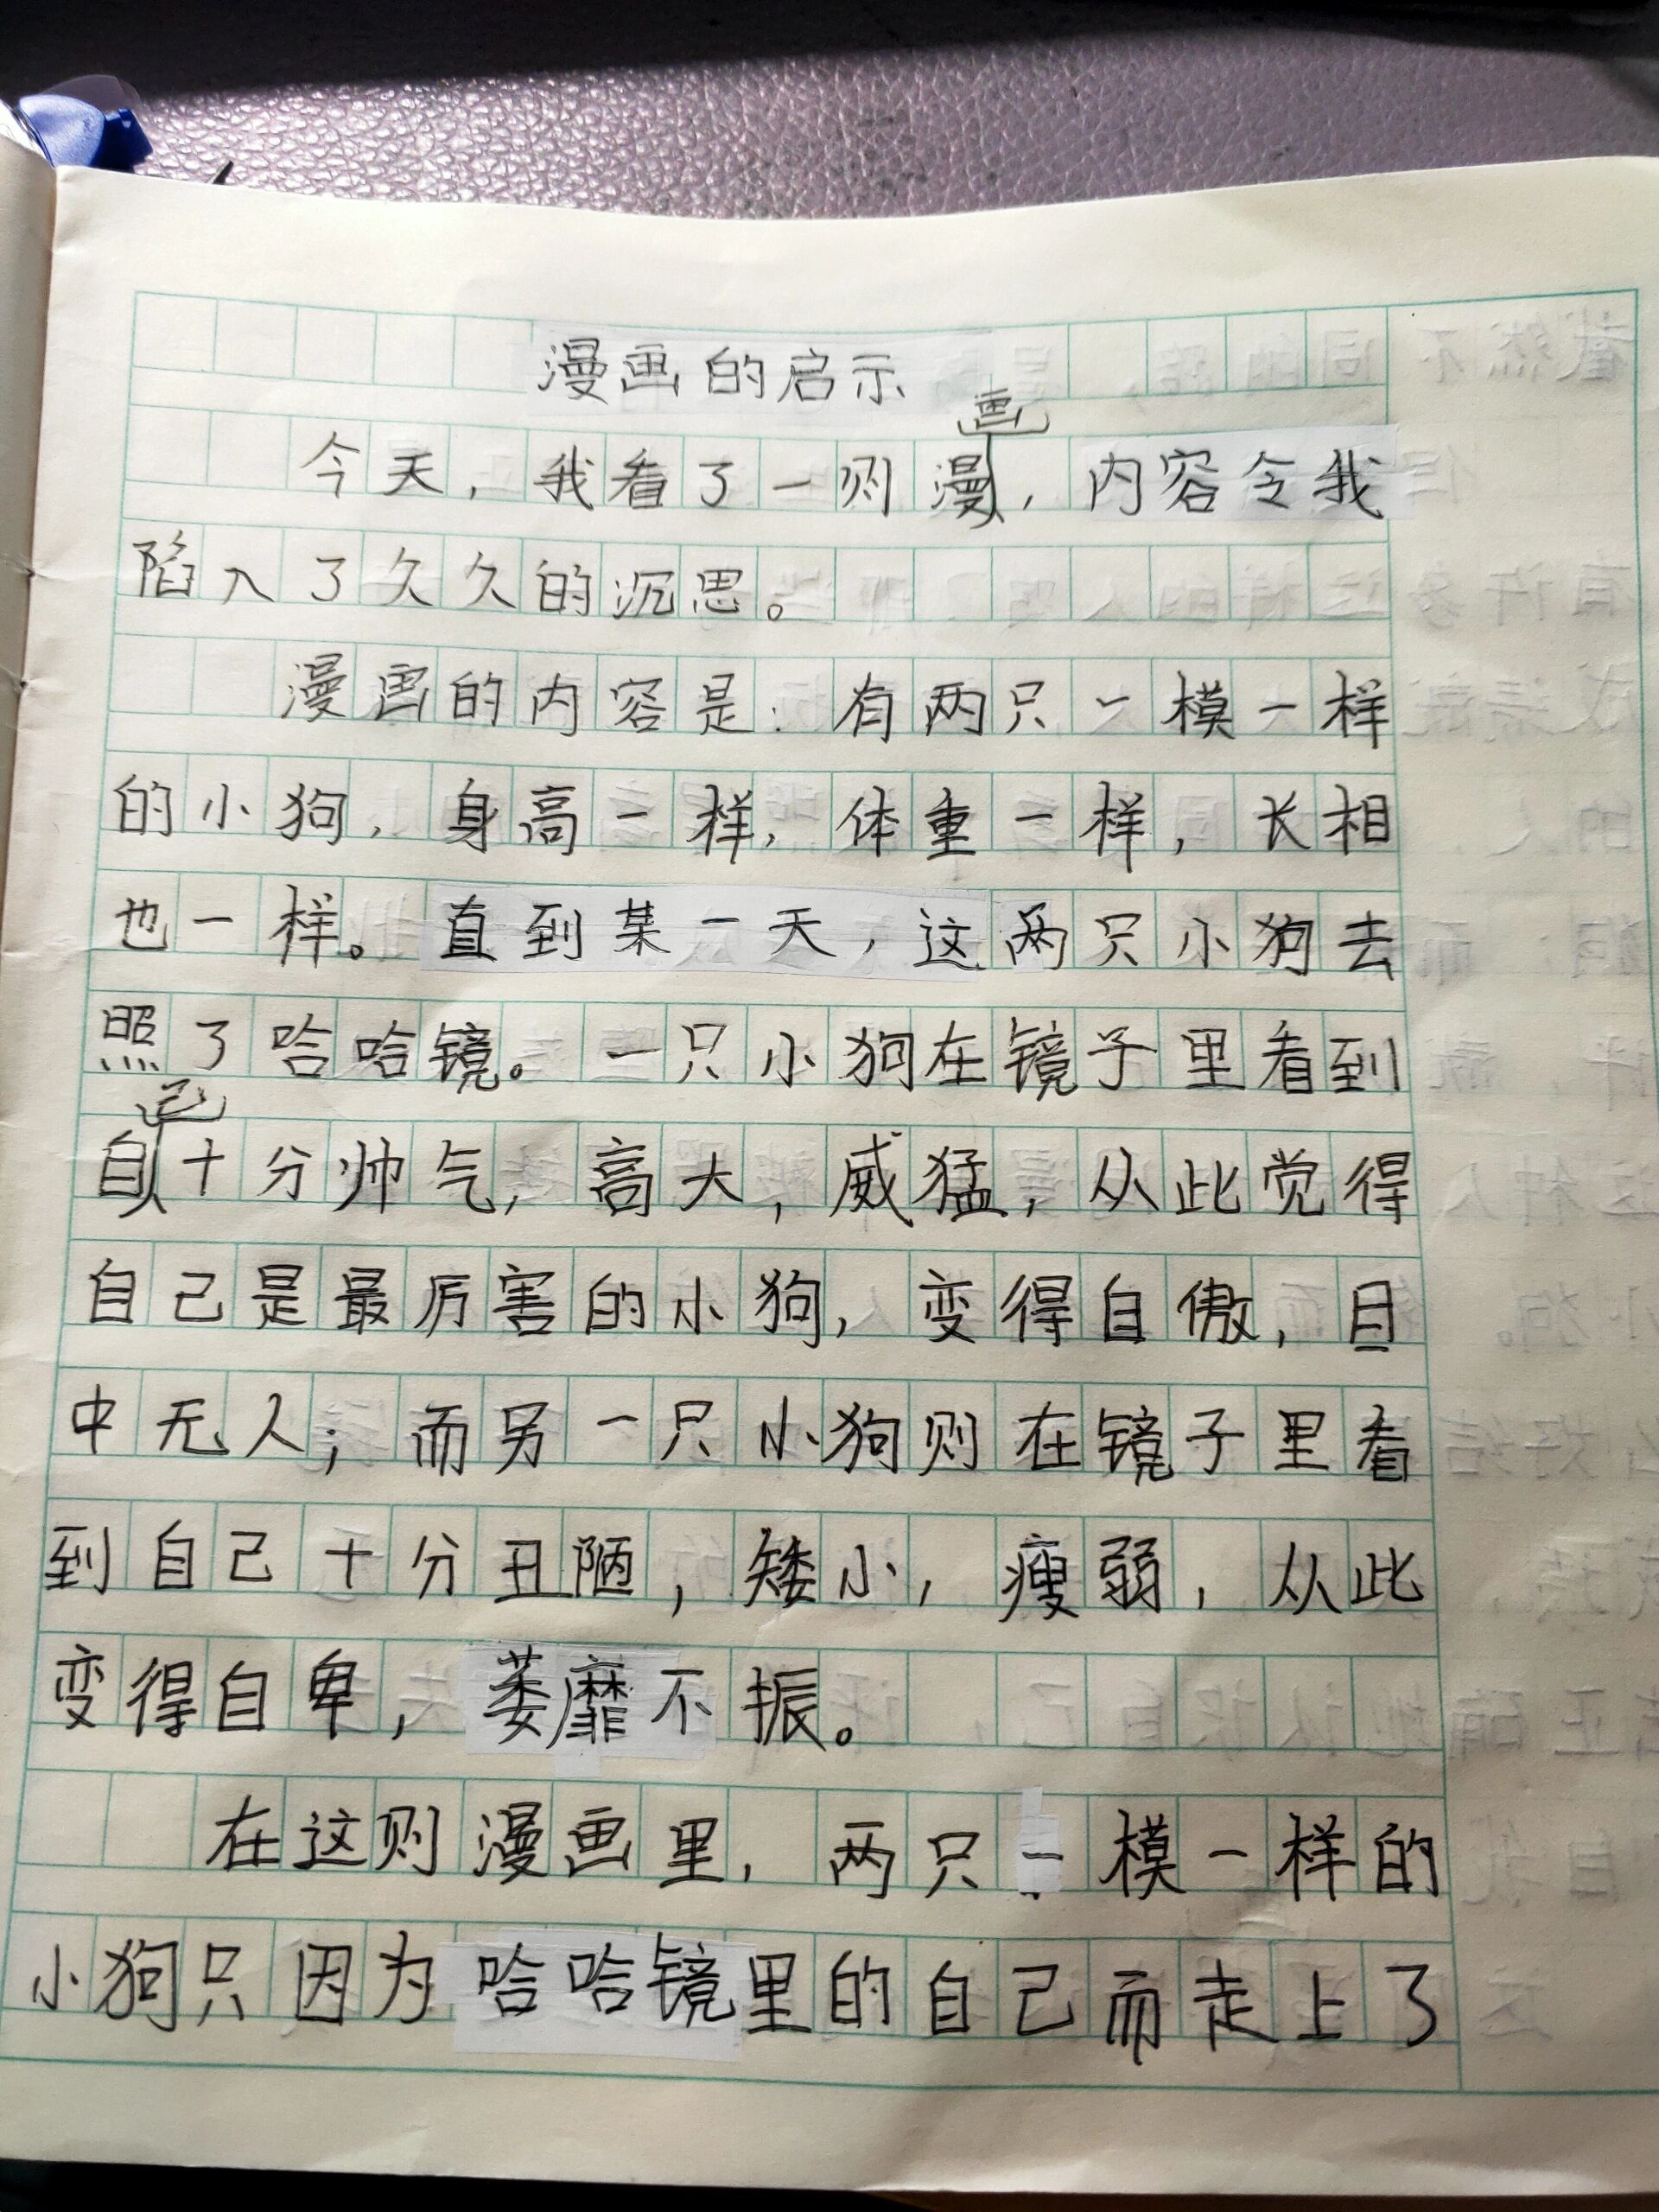 漫画的启示
今天，我看了一则漫画，内容令我
陷入了久久的沉思。
漫画的内容是：有两只一模一样
的小狗，身高一样，体重一样，长相
也一样。直到某一天，这两只小狗去
照了哈哈镜。一只小狗在镜子里看到
自己十分帅气，高大，威猛，从此觉得
自己是最厉害的小狗，变得自傲，目
中无人；而另一只小狗则在镜子里看
到自己十分丑陋，矮小，瘦弱，从此
变得自卑，萎靡不振。
在这则漫画里，两只一模一样的
小狗只因为哈哈镜里的自己而走上了